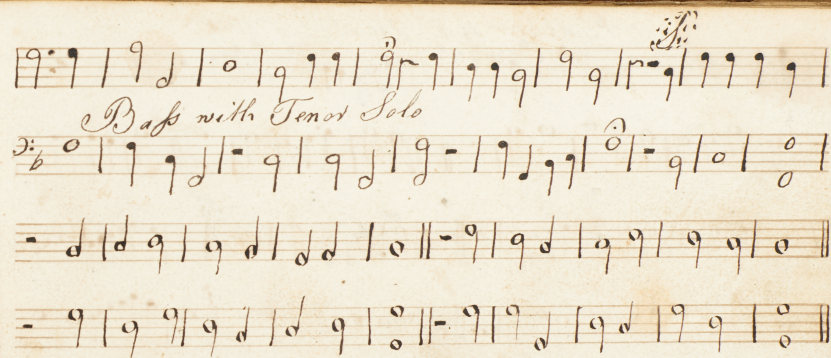 Bass with Tenor Solo